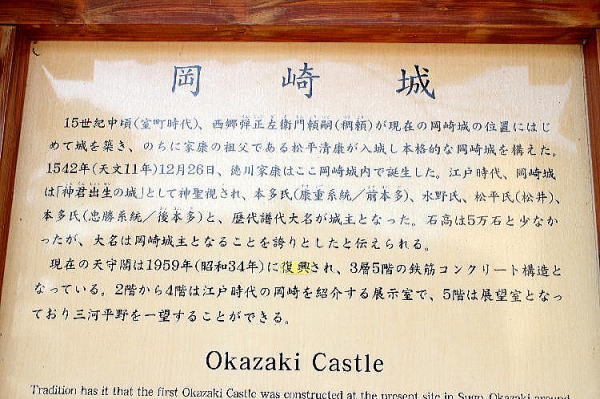 岡崎城
15世紀中頃(室町時代)、西郷弾正左衛門頼嗣(稠頼)が現在の岡崎城の位置にはじ
めて城を築き、のちに家康の祖父である松平清康が入城し本格的な岡崎城を構えた。
1542年(天文11年)12月26日、徳川家康はここ岡崎城内で誕生した。江戸時代、岡崎城
は「神君出生の城」として神聖視され、本多氏(康重系統／前本多)、水野氏、松平氏(松井)、
本多氏(忠勝系統／後本多)と、歴代譜代大名が城主となった。石高は5万石と少なか
ったが、大名は岡崎城主となることを誇りとしたと伝えられる。
現在の天守閣は1959年(昭和34年)に復興され、3層5階の鉄筋コンクリート構造と
なっている。2階から4階は江戸時代の岡崎を紹介する展示室で、5階は展望室となっ
ており三河平野を一望することができる。
Okazaki Castle
Tradition has it that the first Okazaki Castle was constructed at the present site in Sugo, Okazaki around